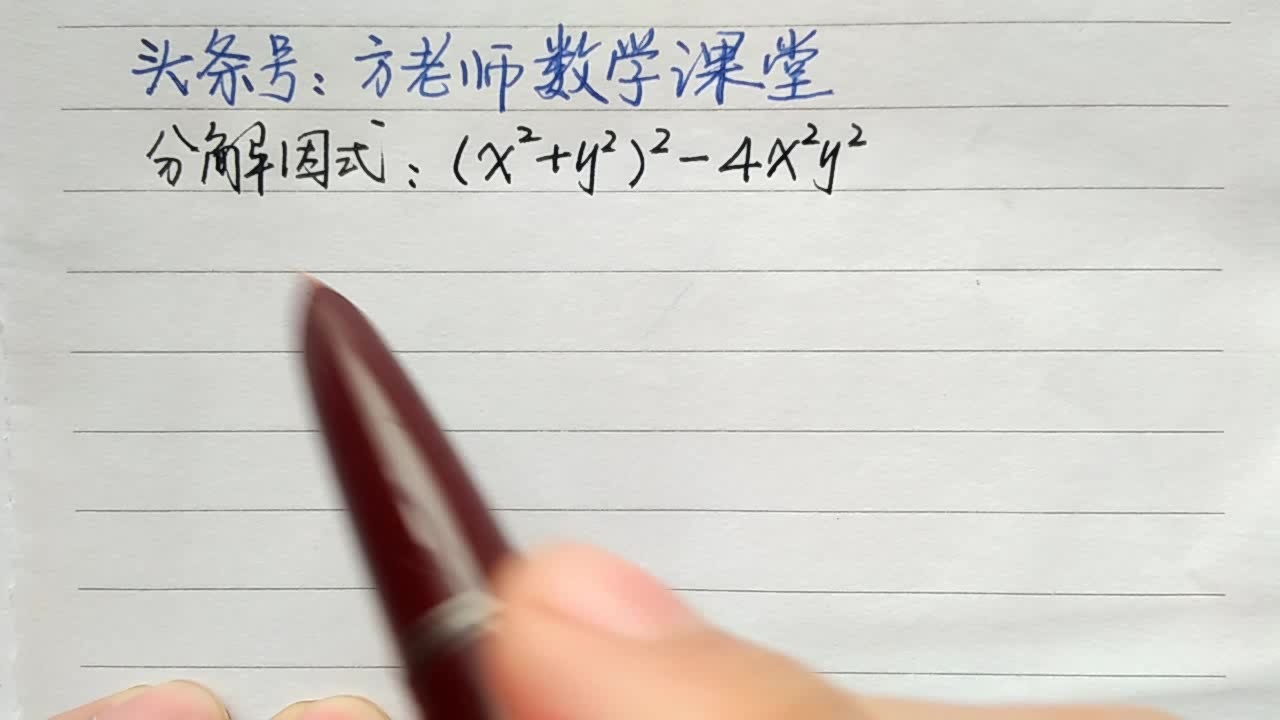 头条号：方老师数学课堂
分解因式：(x²+y²)²-4x²y²